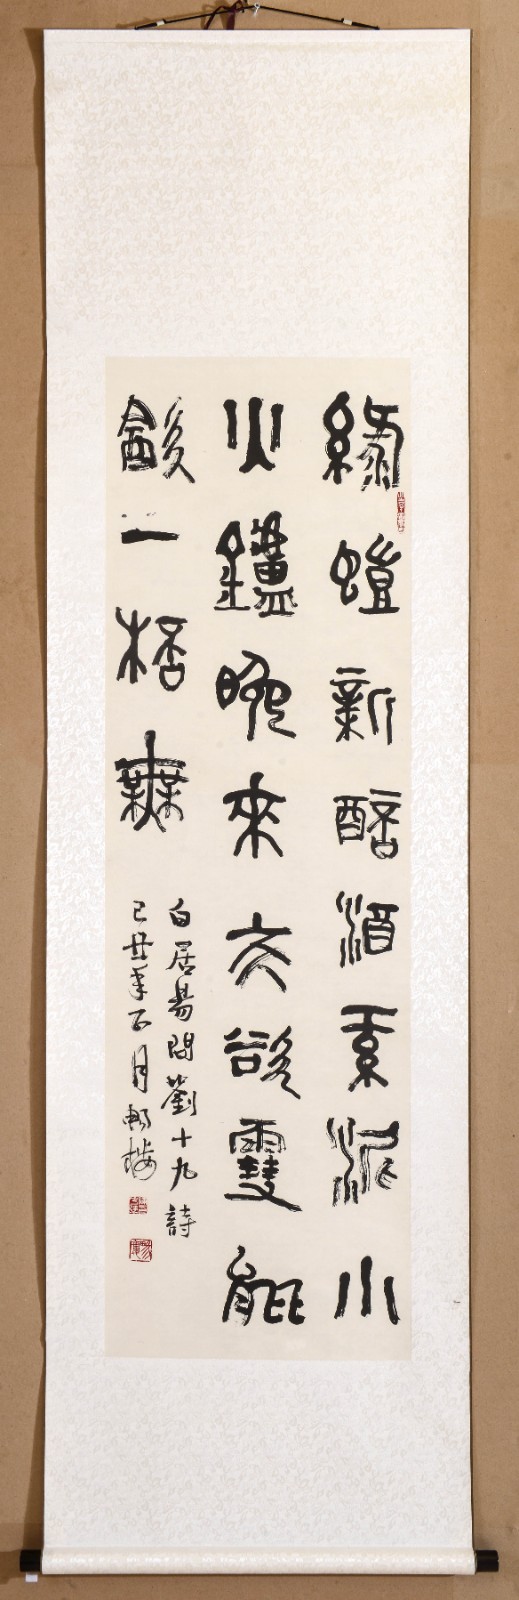 綠螘新醅酒紅泥小
火鑪晚來天欲雪能
飲一桮無
白居易問劉十九詩
己丑年正月